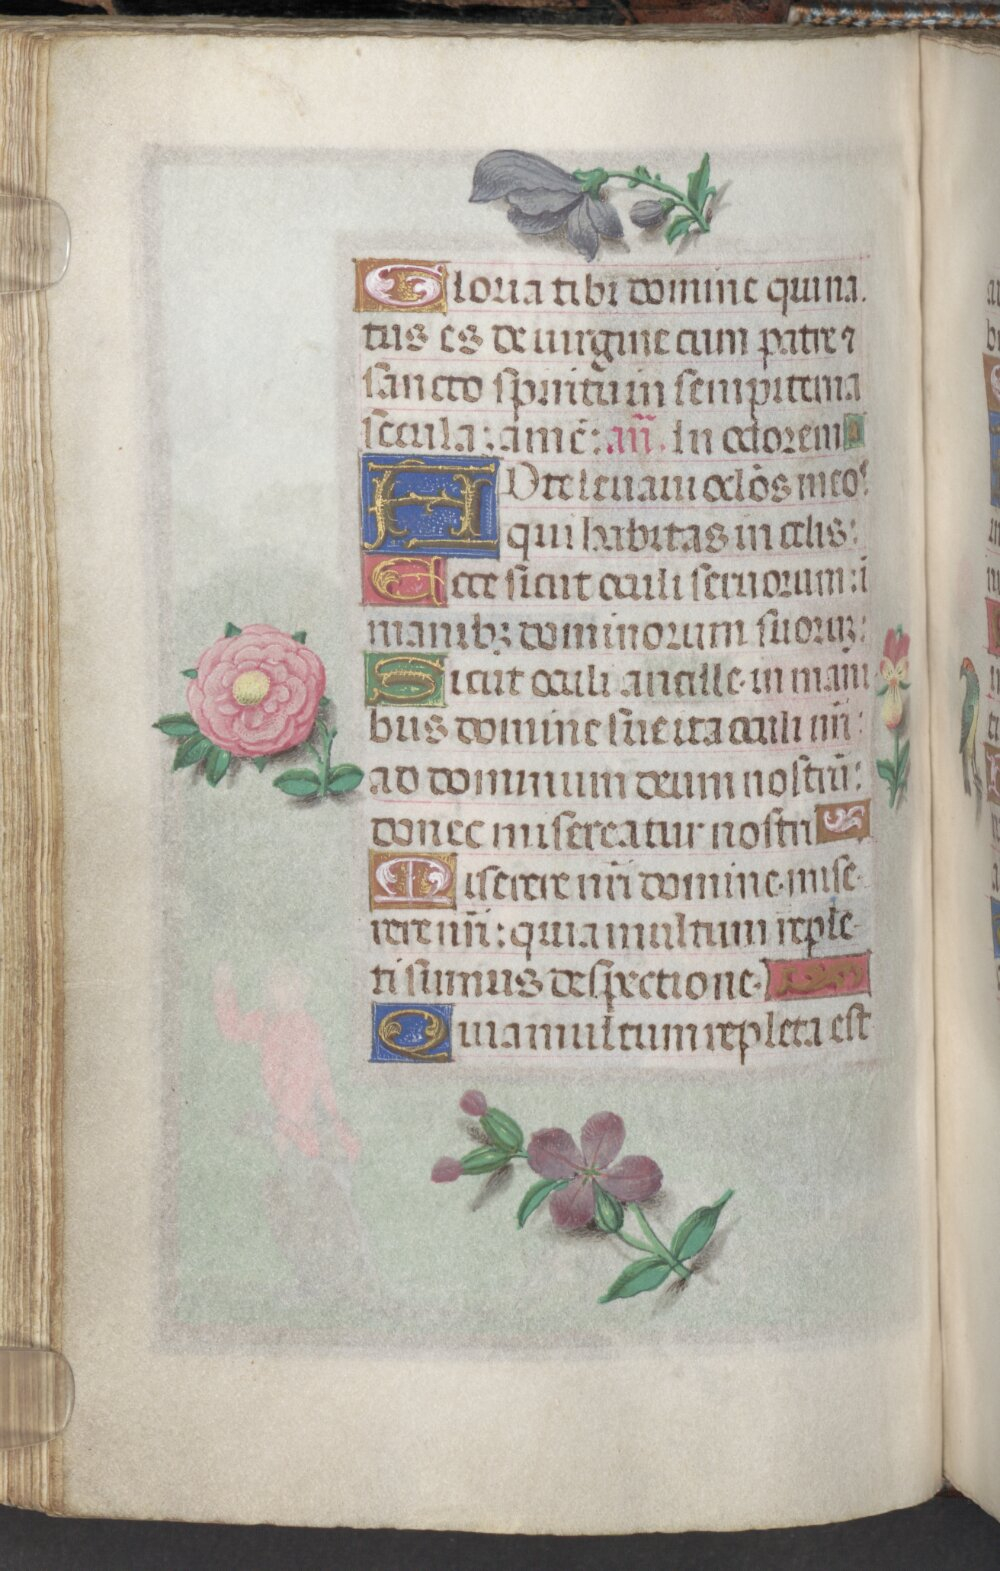 Gloria tibi domine qui na.
tus es de uirgine cum patre ⁊
sancto spiritu in sempiterna
secula: amē: añ. In odorem
AD te leuaui oclōs meoˢ
qui habitas in celis:
Ecce sicut oculi seruorum: ī
manibꝫ dominorum suoruꝫ:
Sicut oculi ancille in mani
bus domine sue ita oculi nr̄i:
ad dominum deum nostrū:
donec misereatur nostri
Miserere nr̄i domine mise-
rere nr̄i: quia multum reple-
ti sumus despectione.
Quia multum repleta est